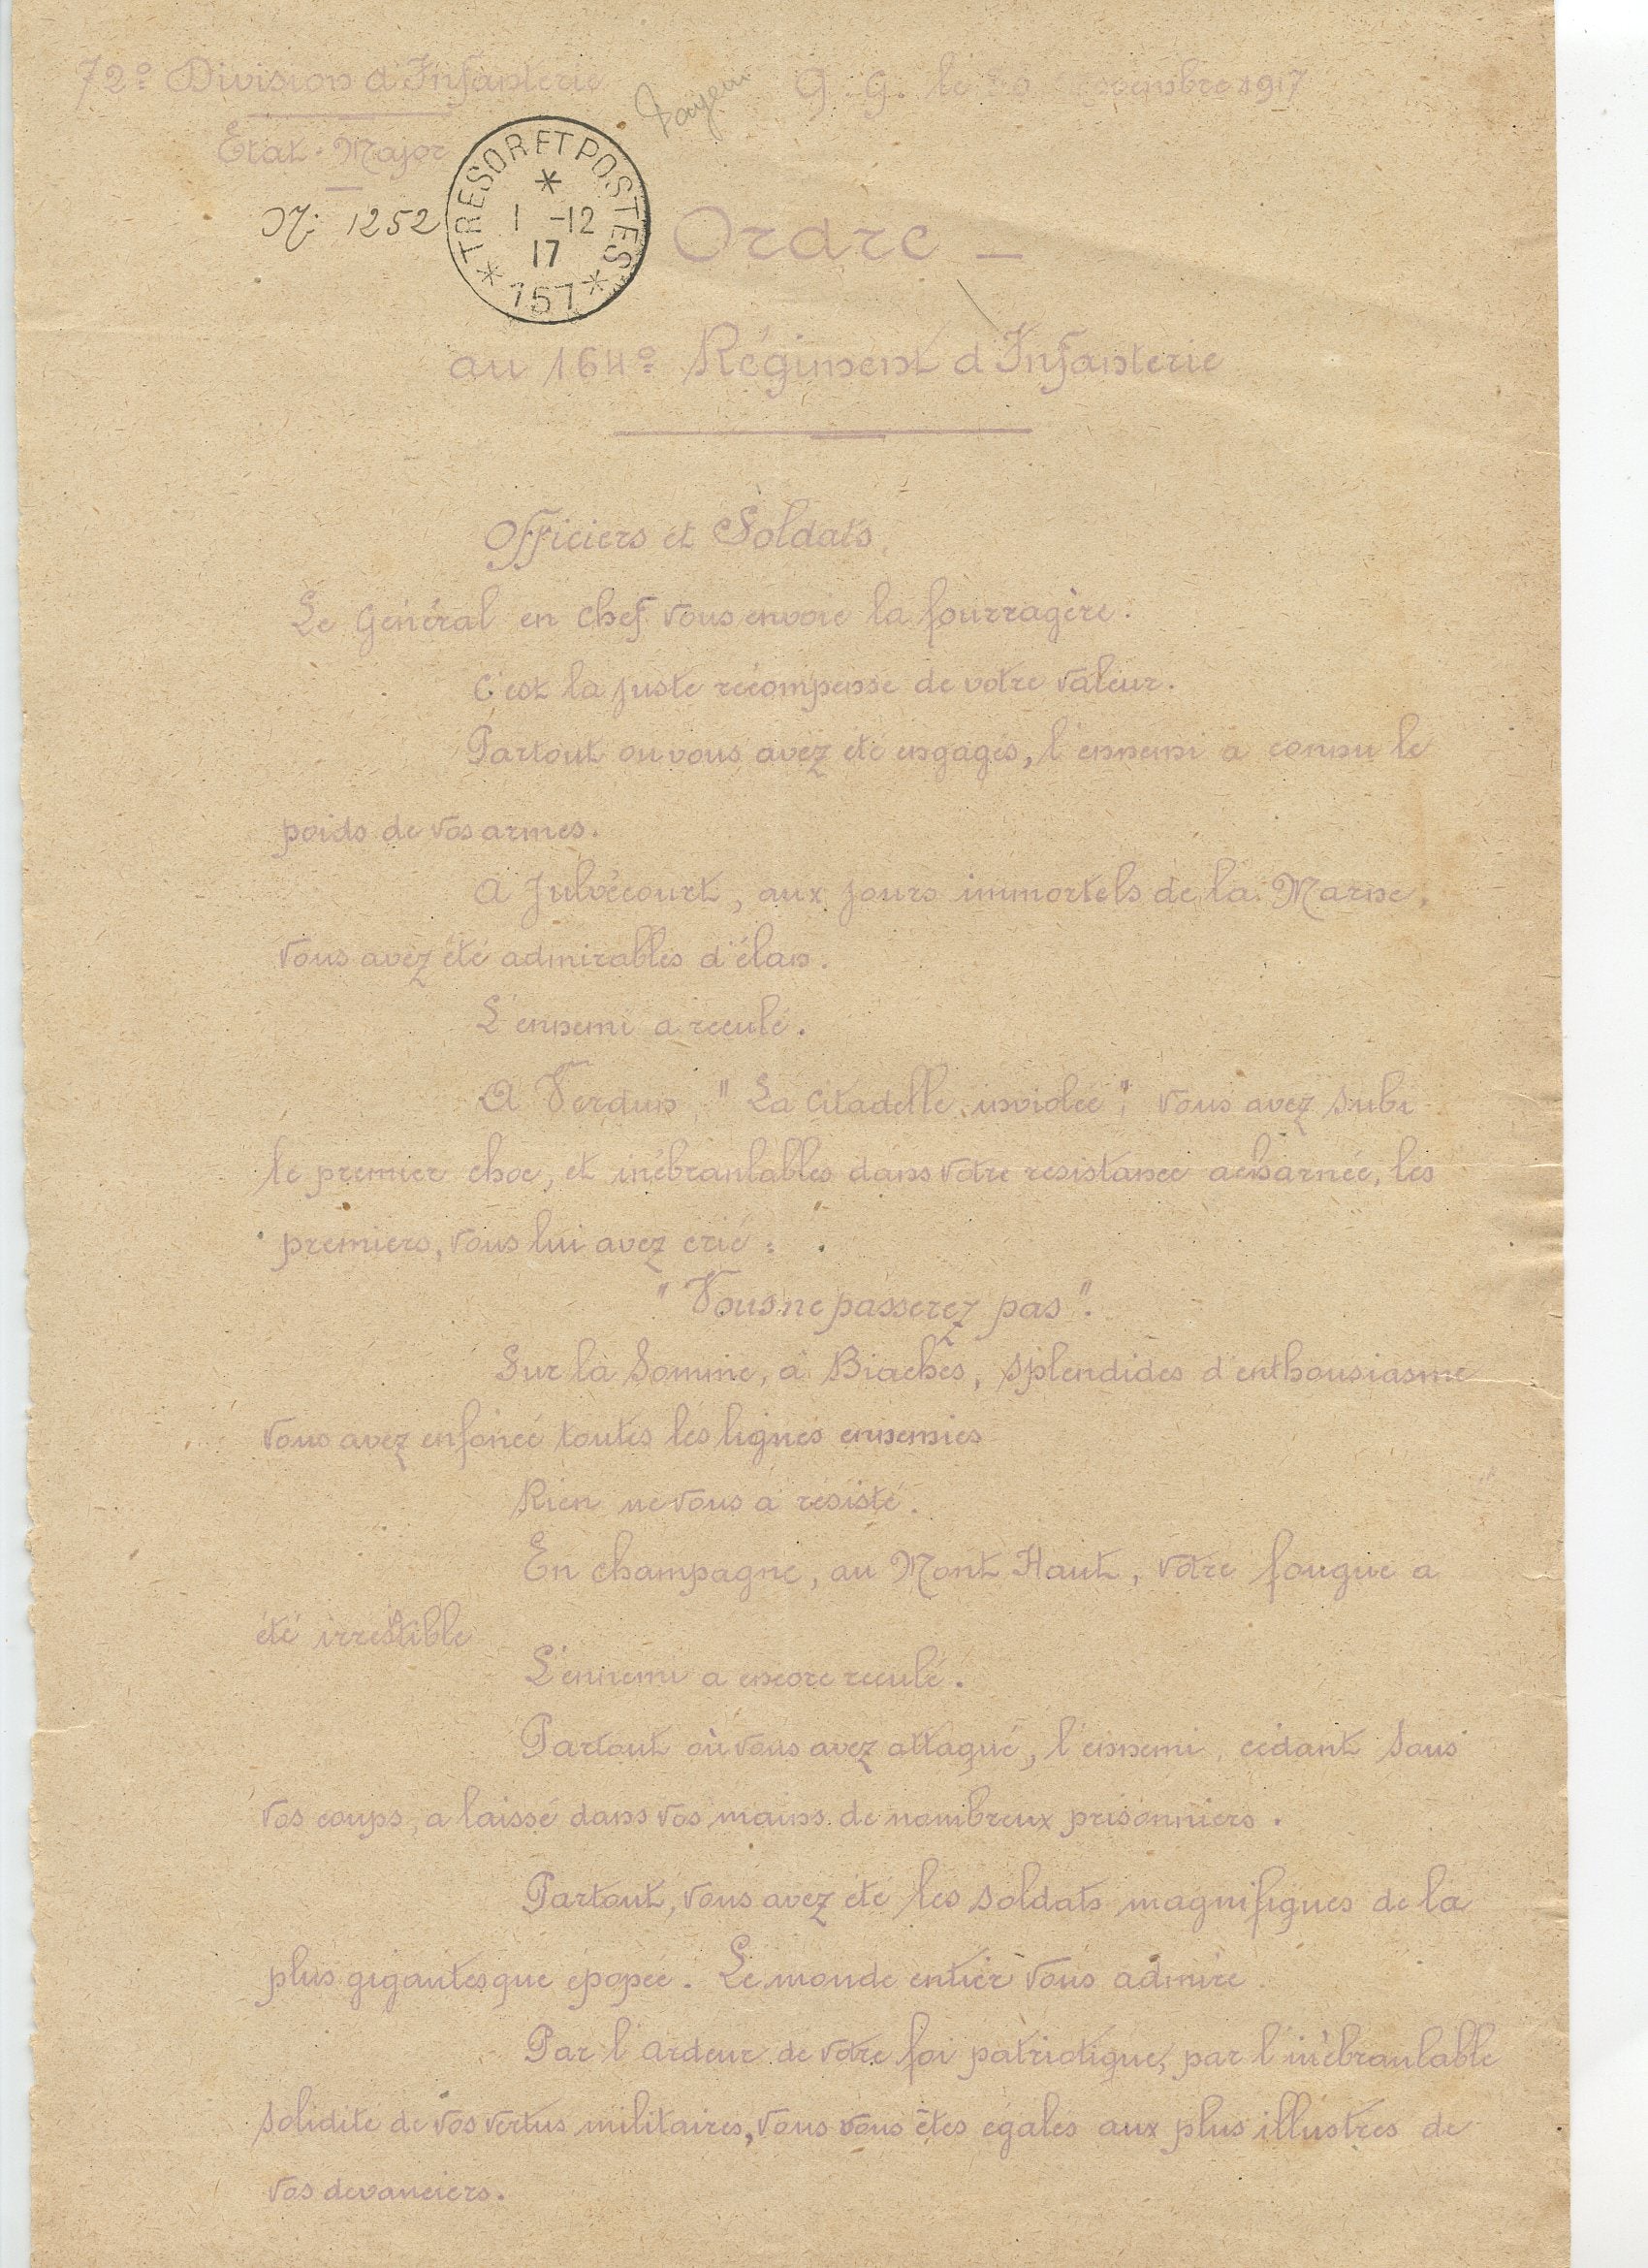 72e Division d'Infanterie
Payeur
Q. G. le 30 novembre 1917
Etat-Major
N: 1252
TRESOR ET POSTES
1 -12
17
157
Ordre
au 164e Régiment d'Infanterie
Officiers et Soldats,
Le Général en chef vous envoie la fourragère.
C'est la juste récompense de votre valeur.
Partout ou vous avez été engagés, l'ennemi a connu le
poids de vos armes.
A Julvécourt, aux jours immortels de la Marne,
vous avez été admirables d'élan.
L'ennemi a reculé.
A Verdun, "La Citadelle inviolée", vous avez subi
le premier choc, et inébranlables dans votre resistance acharnée, les
premiers, vous lui avez crié :
"Vous ne passerez pas".
Sur la Somme, à Biaches, splendides d'enthousiasme
vous avez enfoncé toutes les lignes ennemies
Rien ne vous a résisté.
En champagne, au Mont Haut, votre fougue a
été irrestible
L'ennemi a encore reculé.
Partout où vous avez attaqué, l'ennemi, cédant sous
vos coups, a laissé dans vos mains de nombreux prisonniers.
Partout, vous avez été les soldats magnifiques de la
plus gigantesque épopée. Le monde entier vous admire.
Par l'ardeur de votre foi patriotique, par l'inébranlable
solidité de vos vertus militaires, vous vous êtes égalés aux plus illustres de
vos devanciers.